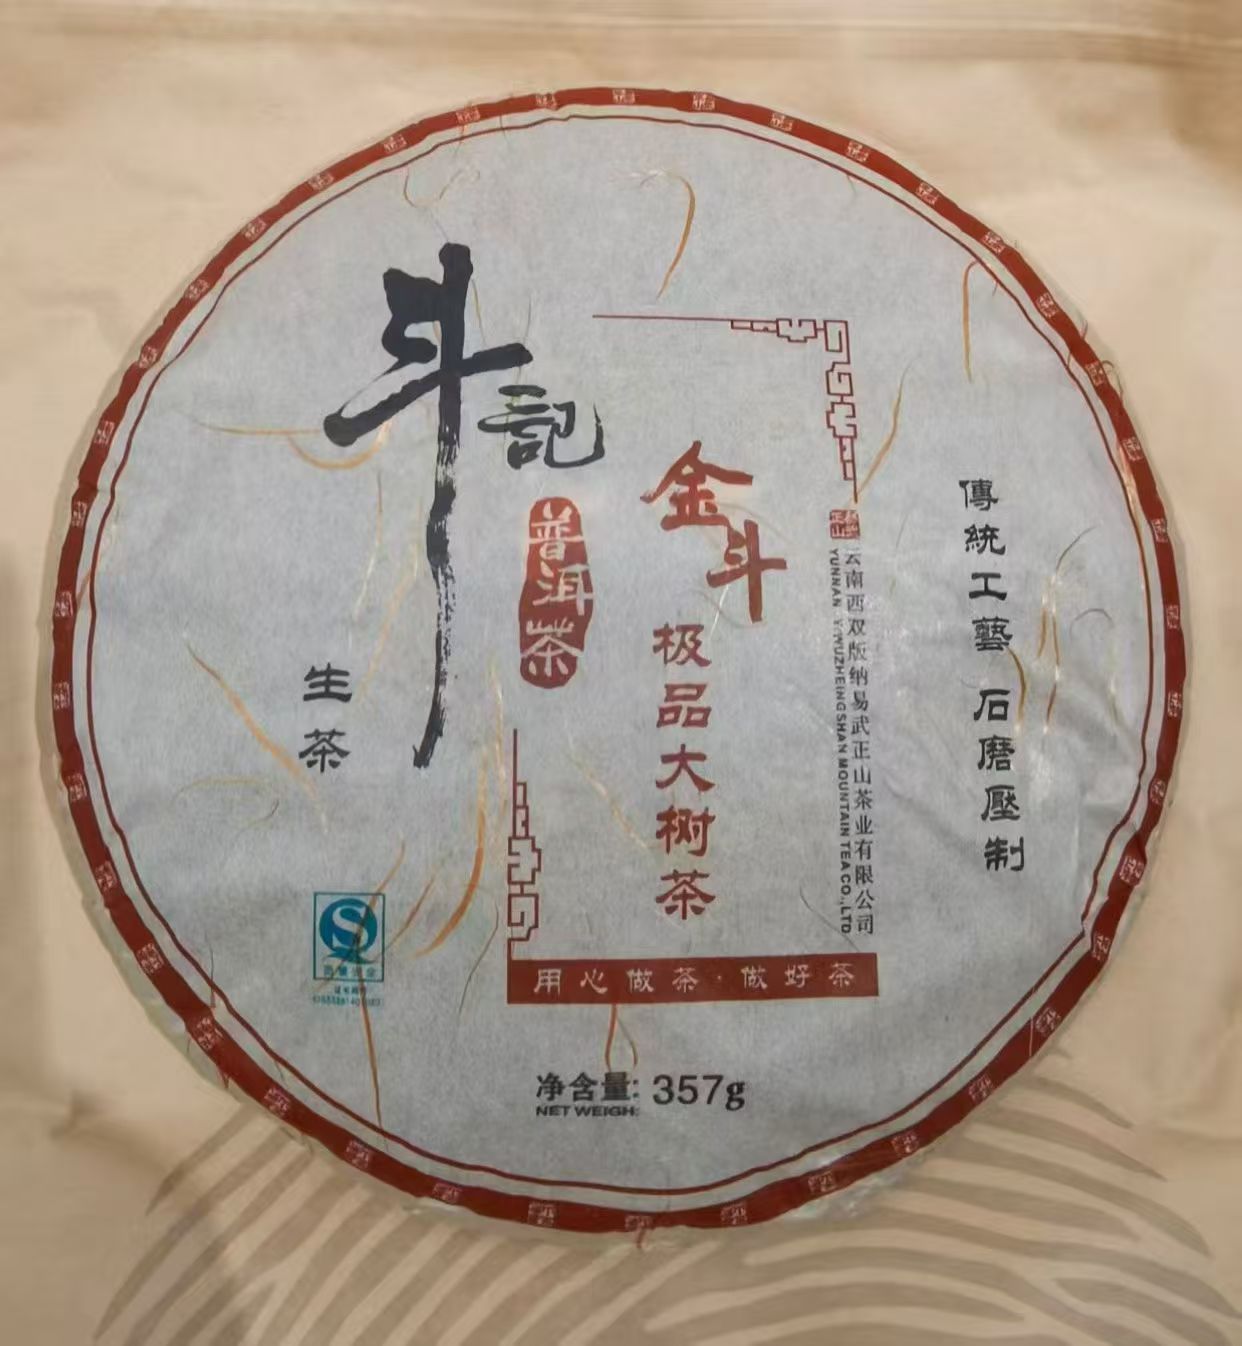 斗記
普洱茶
生茶
金斗
极品大树茶
正山
云南西双版纳易武正山茶业有限公司
YUNNAN YIWUZHEINGSHAN MOUNTAIN TEA CO.,LTD
傳統工藝 石磨壓制
用心做茶·做好茶
净含量: 357g
NET WEIGH: